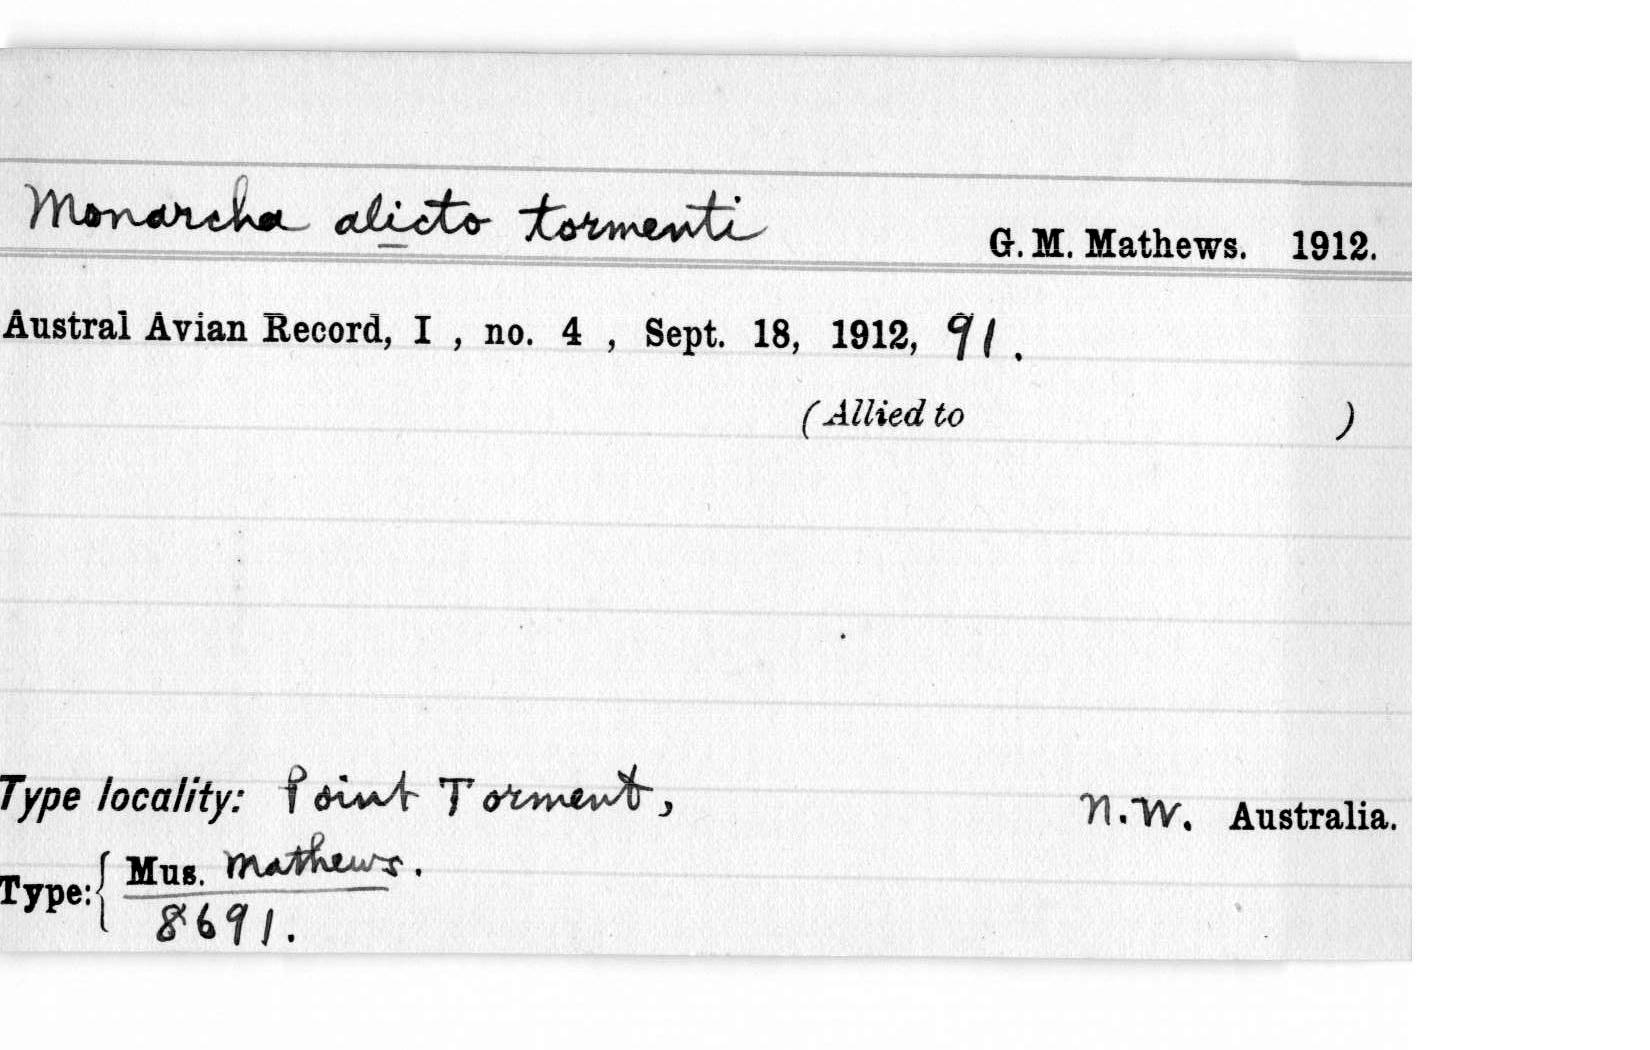 Monarcha alicto tormenti G. M. Mathews. 1912.
Austral Avian Record, I , no. 4 , Sept. 18, 1912, 91.
(Allied to )
Type locality: Point Torment, N.W. Australia.
Type: { Mus. Mathews.
8691.